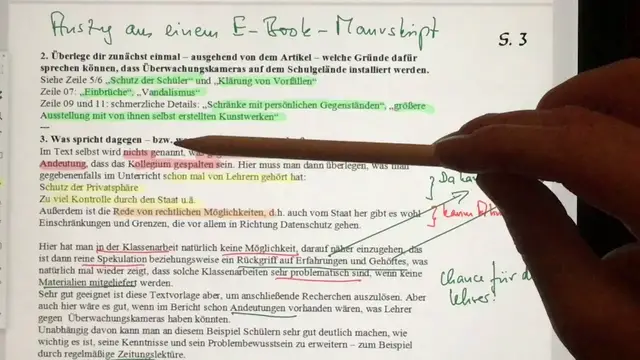 Auszug aus einem E-Book-Manuskript
S. 3
2. Überlege dir zunächst einmal – ausgehend von dem Artikel – welche Gründe dafür
sprechen können, dass Überwachungskameras auf dem Schulgelände installiert werden.
Siehe Zeile 5/6 „Schutz der Schüler“ und „Klärung von Vorfällen“
Zeile 07: „Einbrüche“, „Vandalismus“
Zeile 09 und 11: schmerzliche Details: „Schränke mit persönlichen Gegenständen“, „größere
Ausstellung mit von ihnen selbst erstellten Kunstwerken“
3. Was spricht dagegen – bzw.
Im Text selbst wird nichts genannt,
Andeutung, dass das Kollegium gespalten sein. Hier muss man dann überlegen, was man
gegebenenfalls im Unterricht schon mal von Lehrern gehört hat:
Schutz der Privatsphäre
Zu viel Kontrolle durch den Staat u.ä.
Außerdem ist die Rede von rechtlichen Möglichkeiten, d.h. auch vom Staat her gibt es wohl
Einschränkungen und Grenzen, die vor allem in Richtung Datenschutz gehen.
Hier hat man in der Klassenarbeit natürlich keine Möglichkeit, darauf näher einzugehen, das
ist dann reine Spekulation beziehungsweise ein Rückgriff auf Erfahrungen und Gehörtes, was
natürlich mal wieder zeigt, dass solche Klassenarbeiten sehr problematisch sind, wenn keine
Materialien mitgeliefert werden.
Sehr gut geeignet ist diese Textvorlage aber, um anschließende Recherchen auszulösen. Aber
auch hier wäre es gut, wenn im Bericht schon Andeutungen vorhanden wären, was Lehrer
gegen Überwachungskameras haben könnten.
Unabhängig davon kann man an diesem Beispiel Schülern sehr gut deutlich machen, wie
wichtig es ist, seine Kenntnisse und sein Problembewusstsein zu erweitern – zum Beispiel
durch regelmäßige Zeitungslektüre.
kaum
Chance für d
Lehrer!